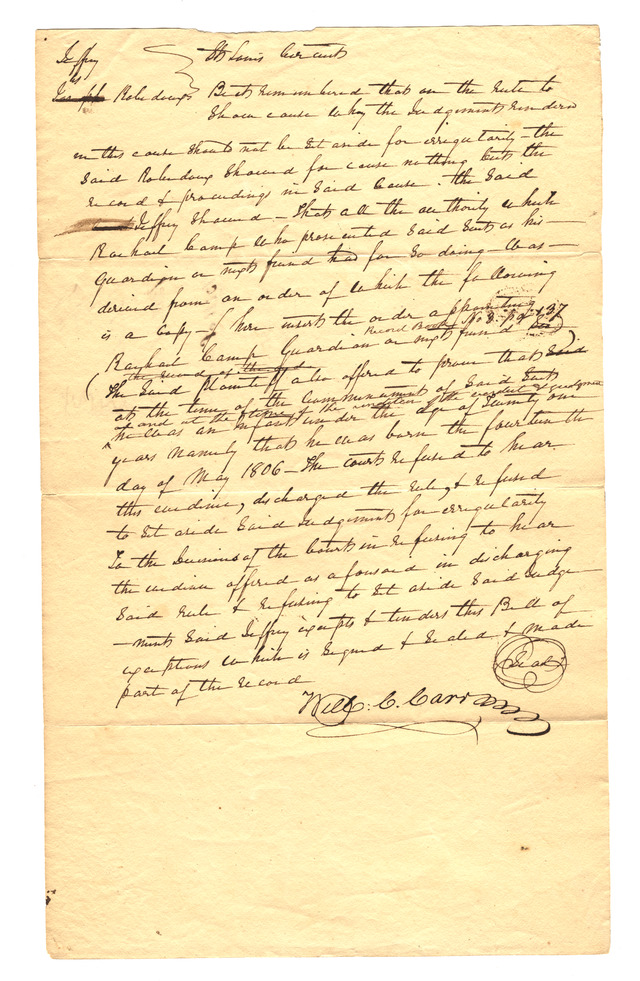 Jeffrey
vs
Robidoux
St Louis Circuit
Be it remembered that on the rule to
Show cause why the Judgement rendered
in this cause should not be Set aside for irregularity – the
Said Robidoux Showed for cause nothing but the
record & proceedings in Said Cause. The Said
Jeffrey Showed – That all the authority which
Rachail Camp who prosecuted Said Suit as his
Guardian or next friend had for So doing – was –
derived from an order of which the following
is a copy – (here insert the order appointing
Record Book No 3. Page 137
Rachail Camp Guardian or next friend)
(The Said Plaintiff also offered to prove that
at the time of the commencement of Said Suit
and at the time of the rendition of the verdict & Judgment
he was an infant under the age of Twenty one
years namely that he was born the fourteenth
day of May 1806 – The court refused to hear
this evidence, discharged the rule, & refused
to Set aside Said Judgement for irregularity
To the Decisions of the Court in refusing to hear
the evidence offered as aforesaid in discharging
Said rule & refusing to Set aside Said Judge
–ment Said Jeffrey excepts & tenders this Bill of
exceptions which is Signed & Sealed & made
part of the record
Seal
Will: C. Carr